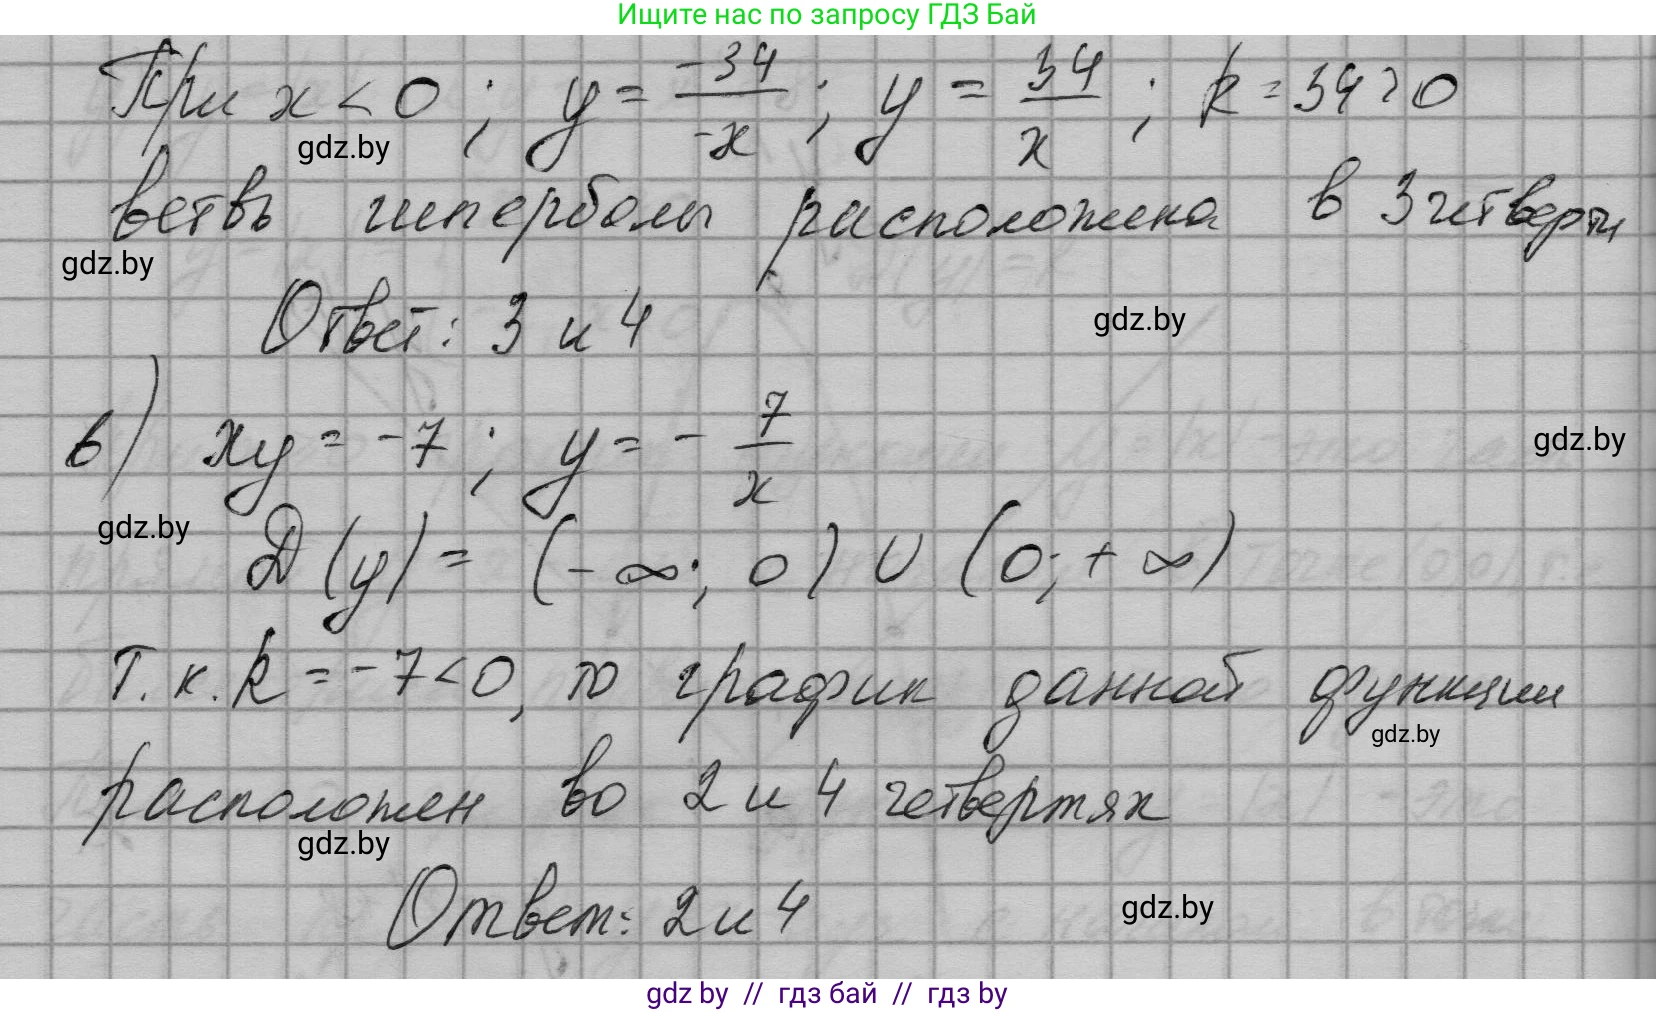 Ищите нас по запросу ГДЗ Бай
При x < 0 ; y = -34/-x ; y = 34/x ; k = 34 > 0
gdz.by
ветвь гиперболы расположена в 3 четверти
gdz.by
Ответ: 3 и 4
gdz.by
в) xy = -7 ; y = - 7/x
gdz.by
gdz.by
D(y) = (-∞; 0) ∪ (0; +∞)
Т.к. k = -7 < 0, то график данной функции
gdz.by
расположен во 2 и 4 четвертях
gdz.by
Ответ: 2 и 4
gdz.by
gdz by // гдз бай // гдз by